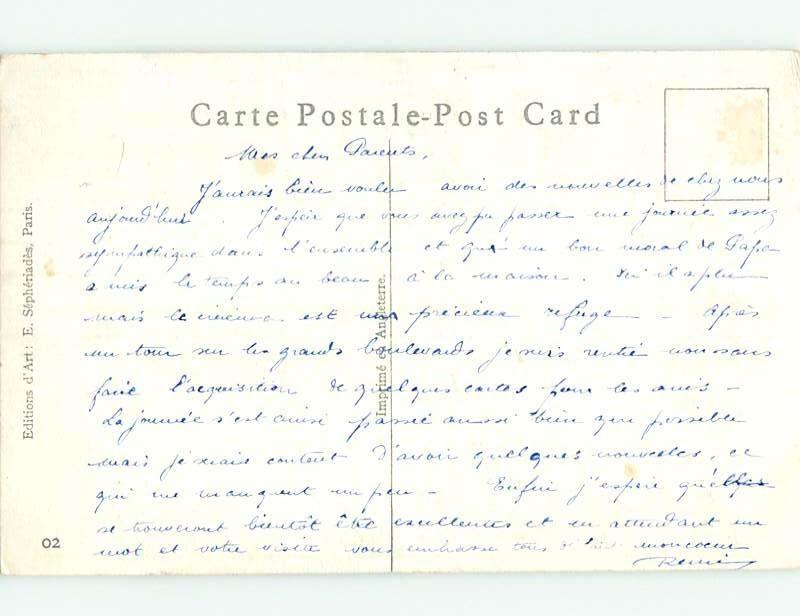 Carte Postale-Post Card
Mes chers Parents,
J'aurais bien voulu avoir des nouvelles de chez nous
aujourd'hui. J'espère que vous avez pu passer une journée assez
sympathique dans l'ensemble et qu'un bon moral de Papa
a mis le temps au beau à la maison. Ici il a plu
mais le cinéma est un précieux refuge - Après
un tour sur les grands boulevards je suis rentré non sans
faire l'acquisition de quelques cartes pour les amis -
La journée s'est ainsi passée aussi bien que possible
mais je serais content d'avoir quelques nouvelles, ce
qui me manquent un peu - Enfin j'espère qu'elles
se trouveront bientôt être excellentes et en attendant un
mot et votre visite vous embrasse tous de tout mon coeur
Editions d'Art: E. Séphériadès, Paris.
Imprimé en Angleterre.
02